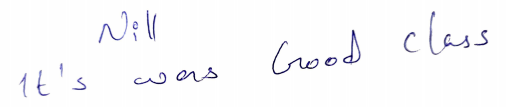 Nill
It's was Good class